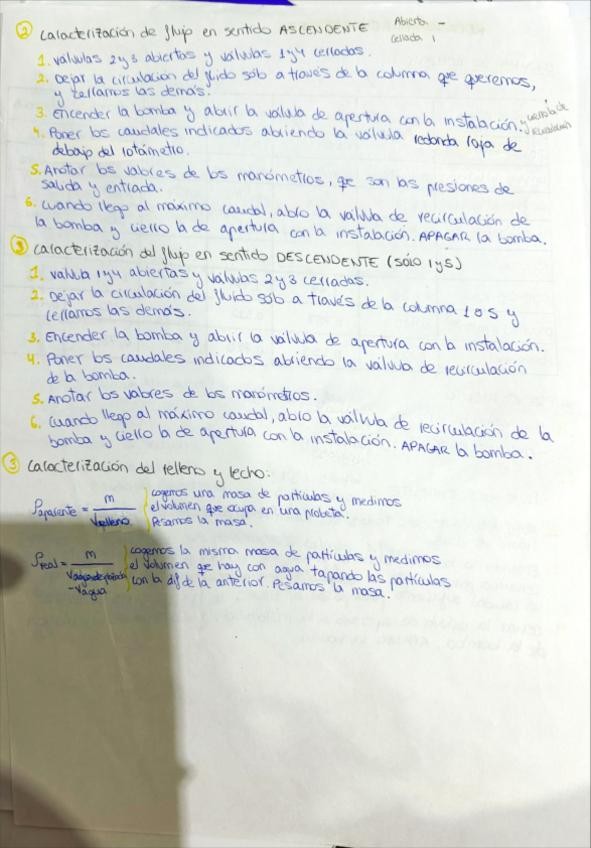 ② Caracterización de flujo en sentido ASCENDENTE
Abierta –
Cerrada |
1. Valvulas 2 y 3 abiertas y válvulas 1 y 4 cerradas.
2. Dejar la circulación del fluido sólo a través de la columna que queremos,
y cerramos las demás.
3. Encender la bomba y abrir la válvula de apertura con la instalación. y cierro la de
recirculación
4. Poner los caudales indicados abriendo la válvula redonda roja de
debajo del rotámetro.
5. Anotar los valores de los manómetros, que son las presiones de
salida y entrada.
6. Cuando llego al máximo caudal, abro la valvula de recirculación de
la bomba y cierro la de apertura con la instalación. APAGAR la bomba.
③ Caracterización del flujo en sentido DESCENDENTE (sólo 1 y 5)
1. Valvula 1 y 4 abiertas y válvulas 2 y 3 cerradas.
2. Dejar la circulación del fluido sólo a través de la columna 1 o 5 y
cerramos las demás.
3. Encender la bomba y abrir la válvula de apertura con la instalación.
4. Poner los caudales indicados abriendo la válvula de recirculación
de la bomba.
5. Anotar los valores de los manómetros.
6. Cuando llego al máximo caudal, abro la válvula de recirculación de la
bomba y cierro la de apertura con la instalación. APAGAR la bomba.
③ Caracterización del relleno y lecho:
ρaparente = m / Vrelleno
cogemos una masa de partículas y medimos
el volumen que ocupa en una probeta.
Pesamos la masa.
ρreal = m / - Vagua
cogemos la misma masa de partículas y medimos
el volumen que hay con agua tapando las partículas
con la dif de la anterior. Pesamos la masa.